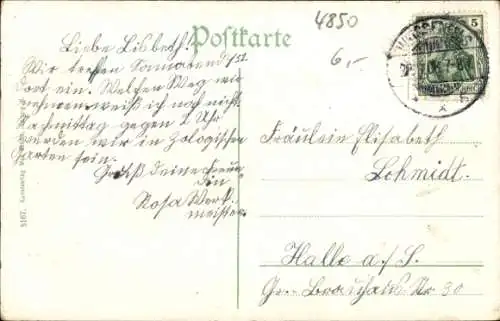 Postkarte
4850
6,-
5
Liebe Lisbeth!
Wir treffen Sonnabend
dort ein. Welchen Weg wir
nehmen weiß ich noch nicht.
Nachmittag gegen 2 Uhr
werden wir im Zologischen
Garten sein.
Gruß Deine Freun
din
Rosa Werk
meister
Fräulein Elisabeth
Schmidt.
Halle a./S.
Gr. Brauhaus Str. 30